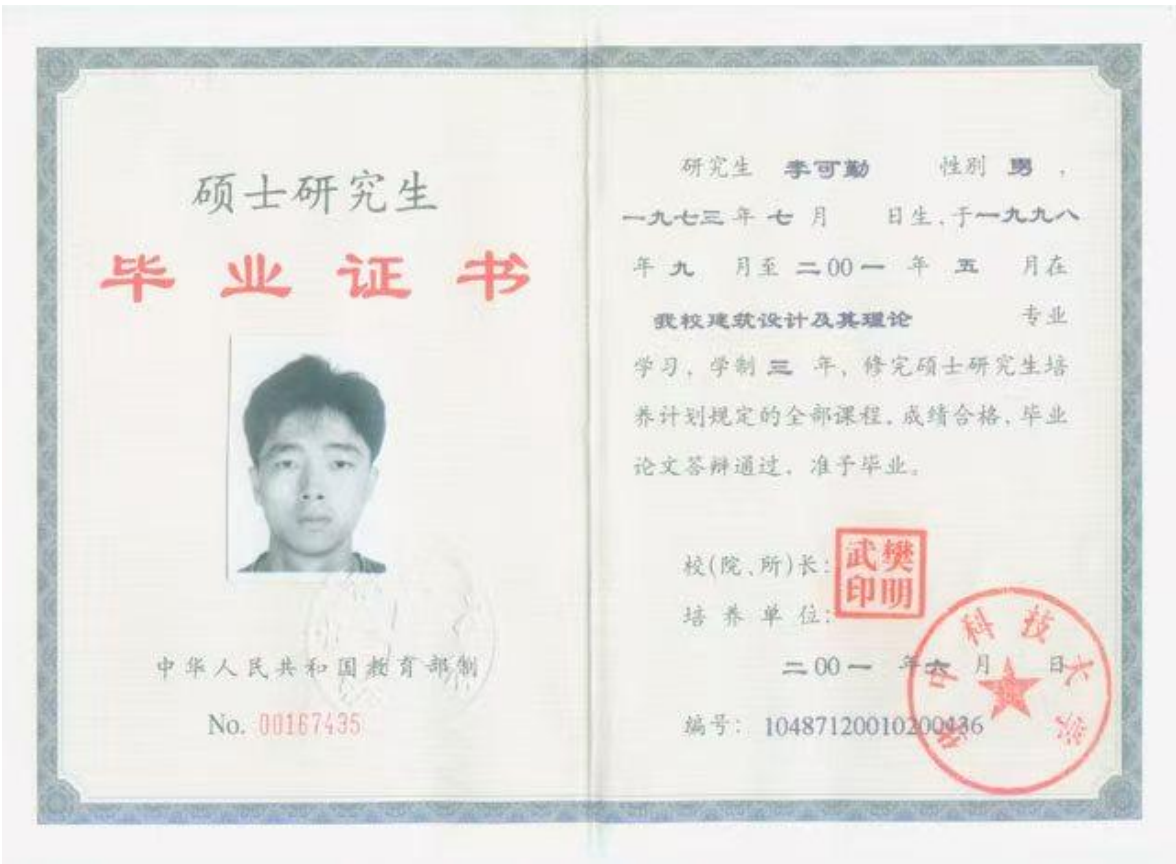 硕士研究生
毕业证书
中华人民共和国教育部制
No. 00167435
研究生 李可勤 性别 男，
一九七三年七月 日生，于一九九八
年九月至二00一年五月在
我校建筑设计及其理论 专业
学习，学制三年，修完硕士研究生培
养计划规定的全部课程，成绩合格，毕业
论文答辩通过，准予毕业。
校(院、所)长：
樊明武印
培养单位：
华中科技大学
二00一年六月 日
编号：10487120010200436